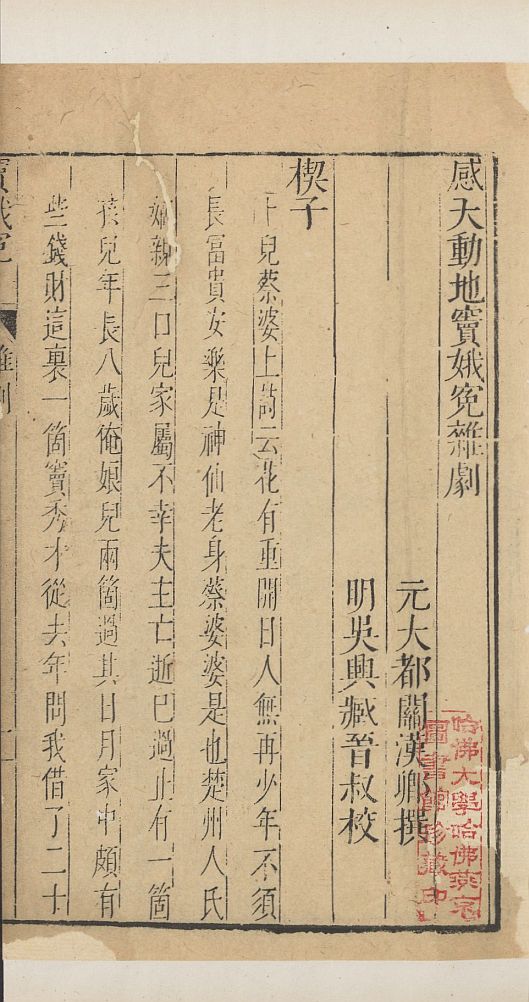 感天動地竇娥冤雜劇
元大都關漢卿撰
明吳興臧晉叔校
哈佛大學哈佛燕京
圖書館珍藏印
楔子
卜兒蔡婆上詩云花有重開日人無再少年不須
長富貴安樂是神仙老身蔡婆婆是也楚州人氏
嫡親三口兒家屬不幸夫主亡逝已過止有一箇
孩兒年長八歲俺娘兒兩箇過其日月家中頗有
些錢財這裏一箇竇秀才從去年問我借了二十
竇娥冤
雜劇
一